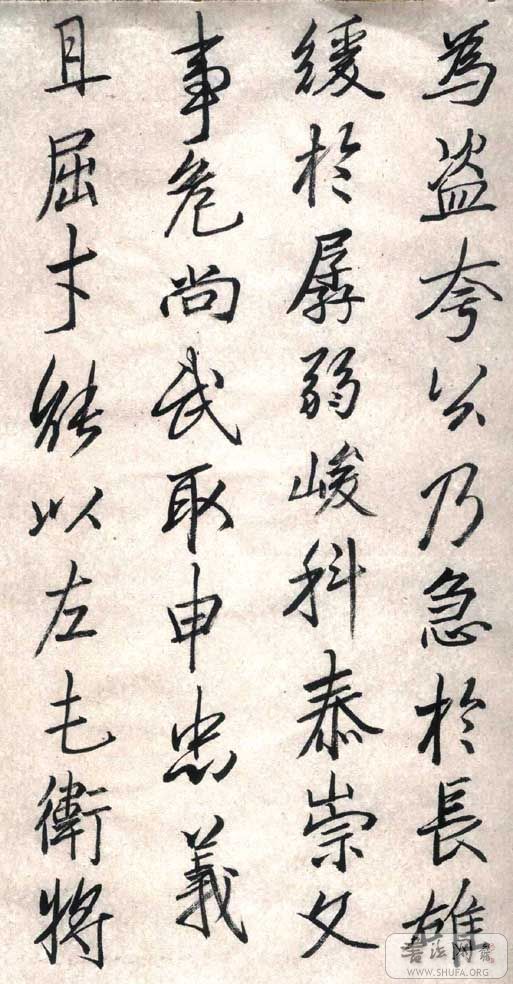 為盜夸公乃急於長雄
緩於孱弱峻科泰崇文
事危尚武取申忠義
且屈才能以左屯衛將
書法网
WWW.SHUFA.ORG